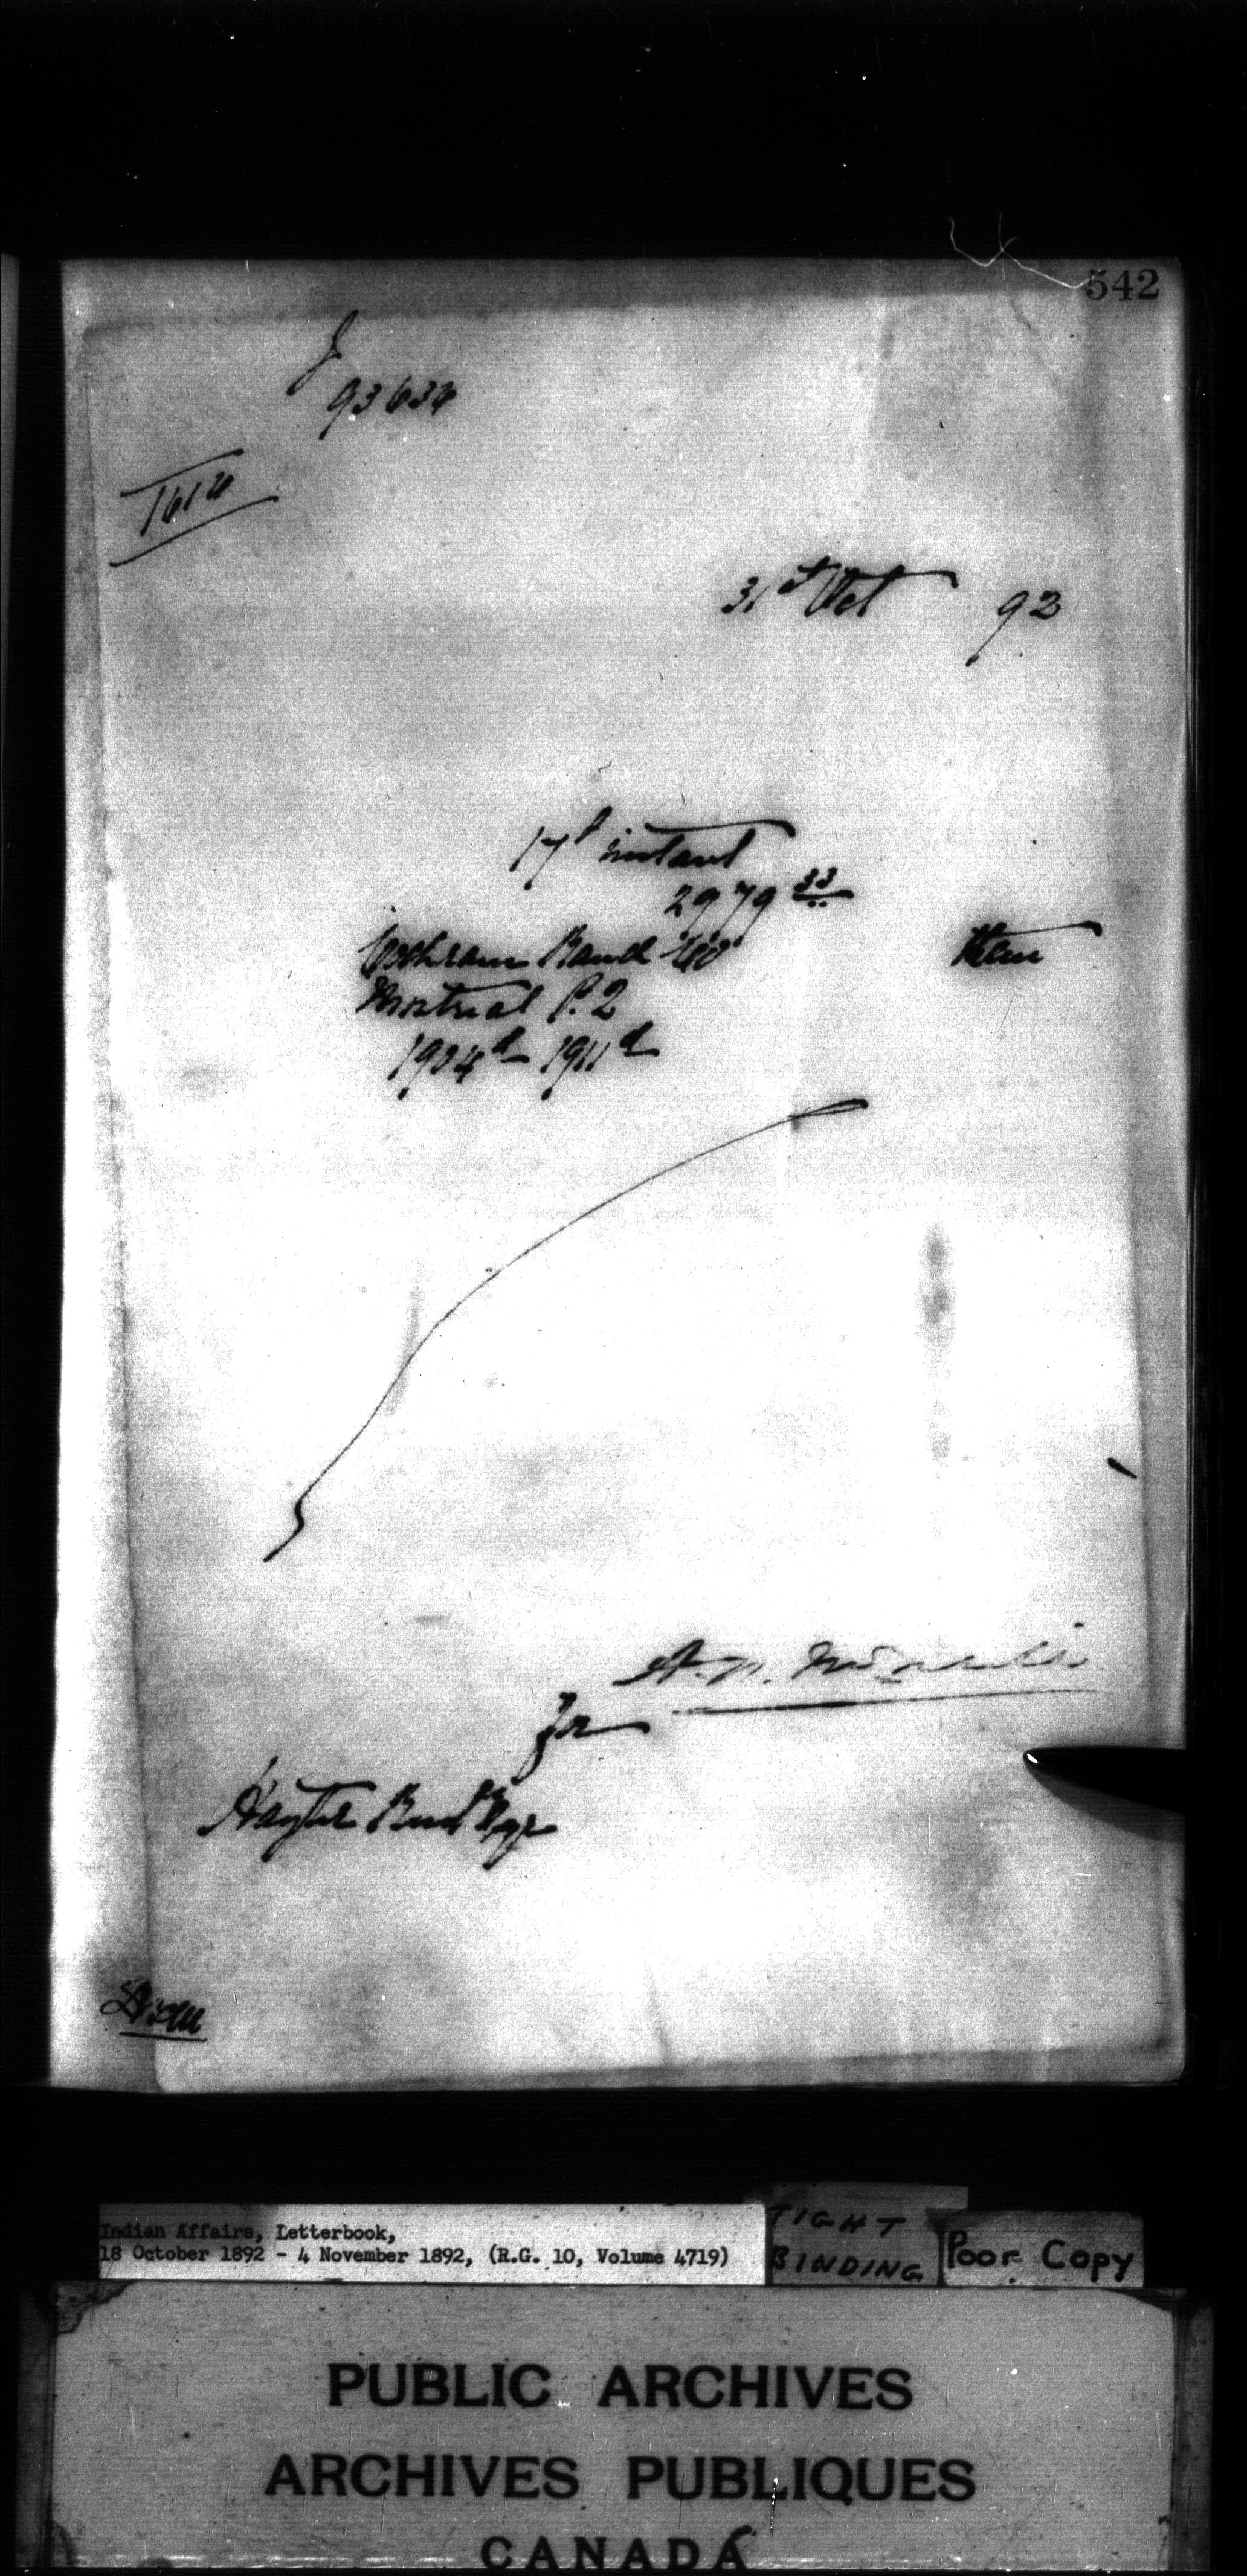 542
93636
1616
31st Oct 92
17th instant
2979 33
Cochrane
Montreal P.Q
1904 1911
For
Hayter Reed Esqr
Indian Affairs, Letterbook,
18 October 1892 - 4 November 1892, (R.G. 10, Volume 4719)
TIGHT
BINDING
Poor Copy
PUBLIC ARCHIVES
ARCHIVES PUBLIQUES
CANADA